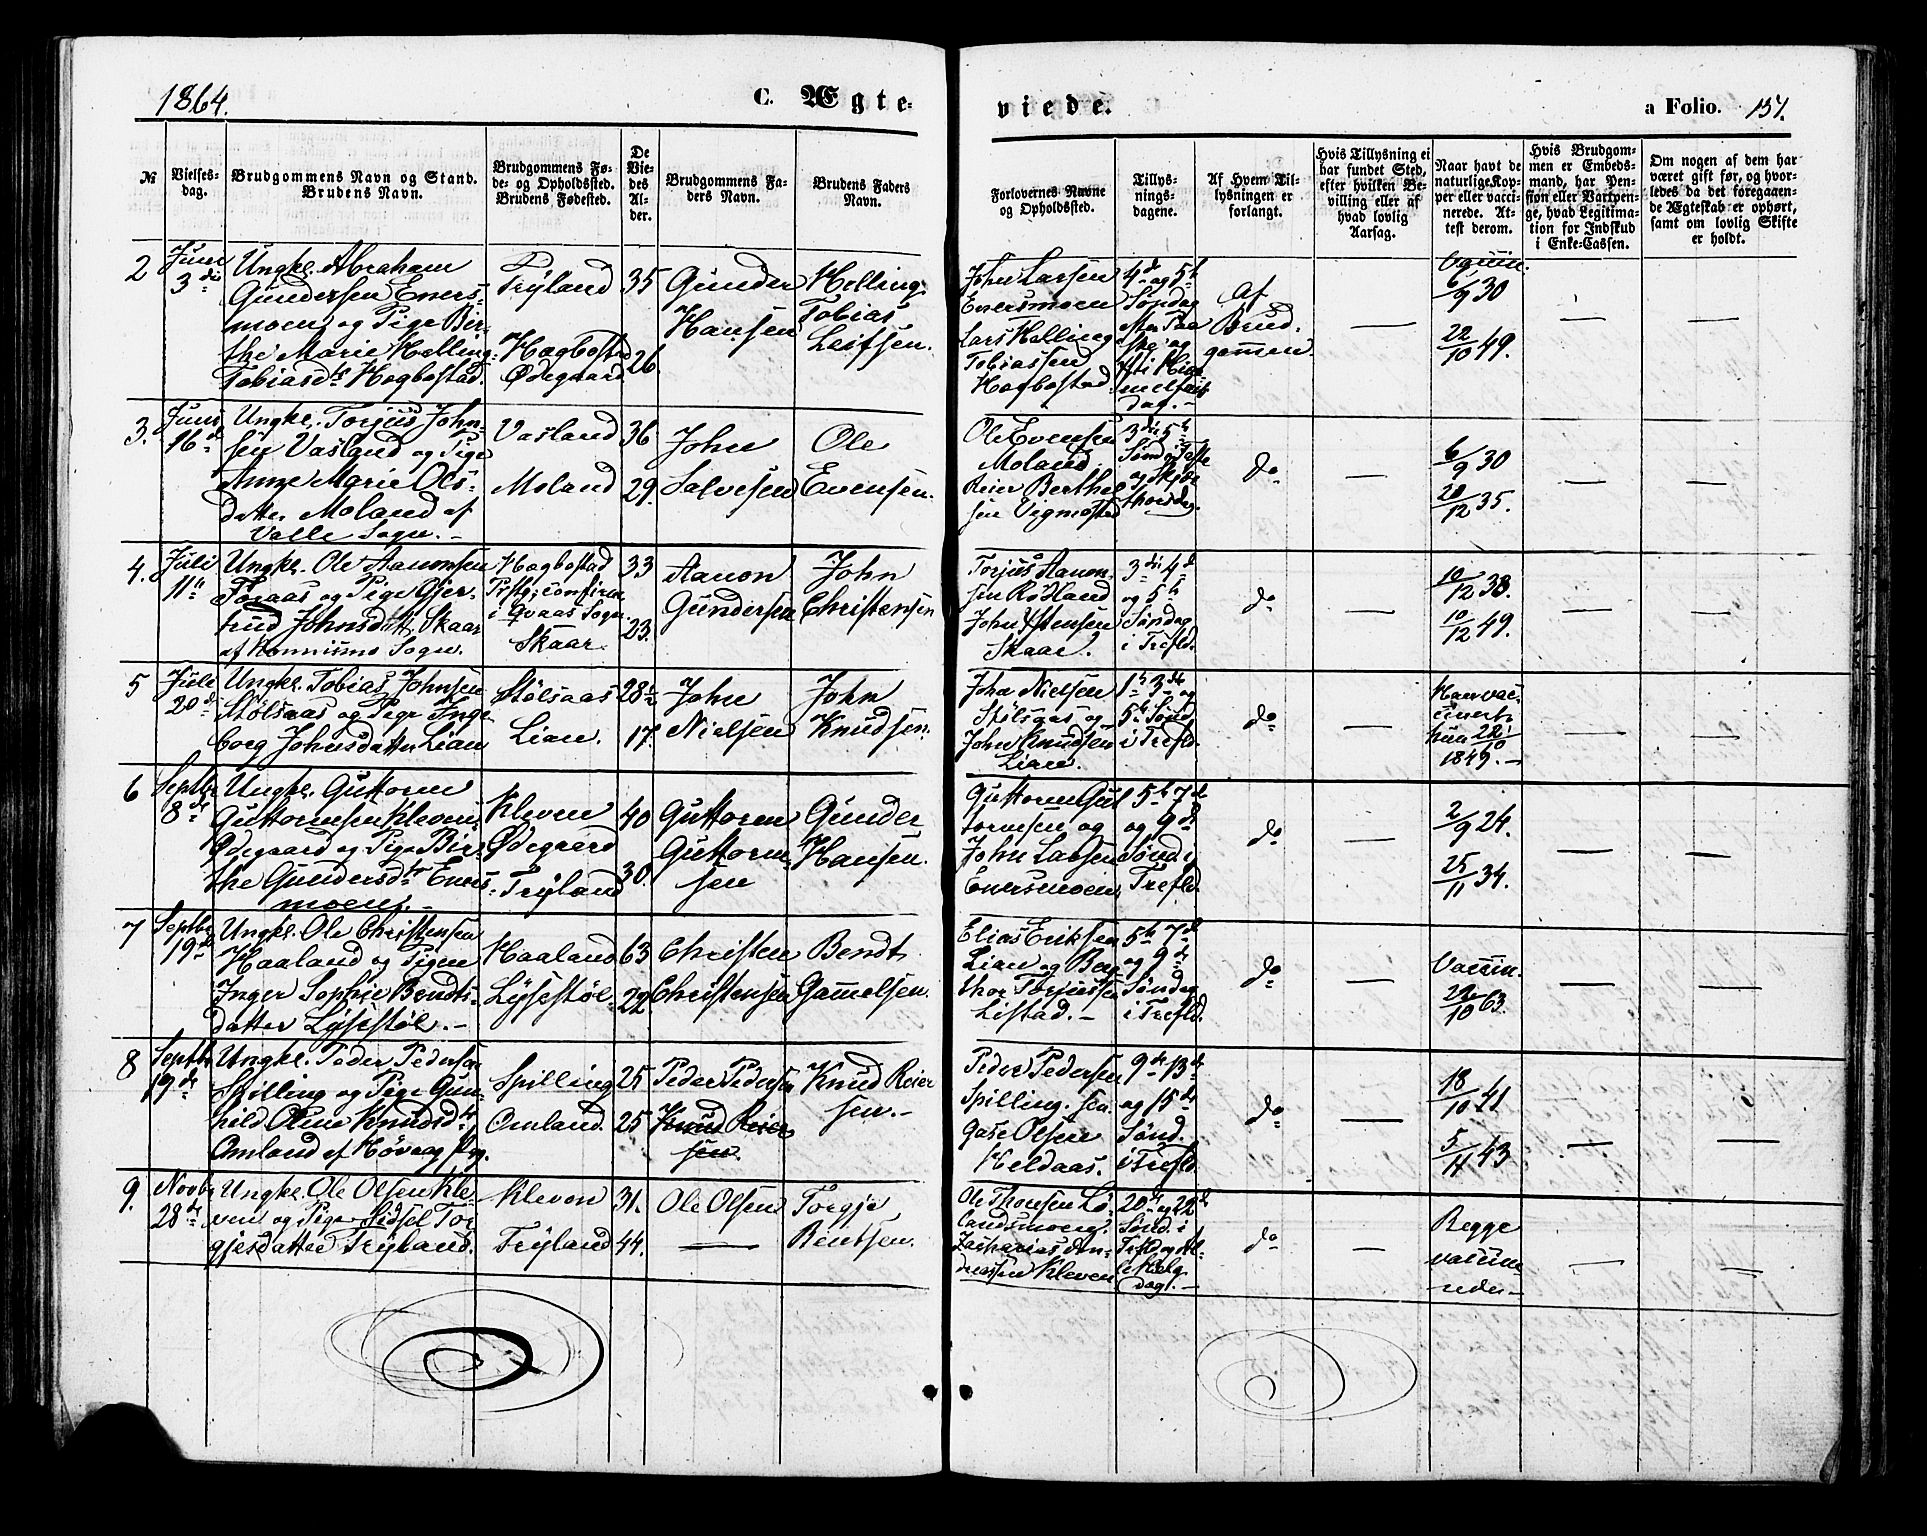 1864.
C. Ægte-
viede.
a Folio. 157.
№
Vielses-
dag.
Brudgommens Navn og Stand.
Brudens Navn.
Brudgommens Fø-
de- og Opholdssted.
Brudens Fødested.
De
Vie-
des
Al-
der.
Brudgommens Fa-
ders Navn.
Brudens Faders
Navn.
Forlovernes Navne
og Opholdssted.
Tillys-
nings-
dagene.
Af Hvem Til-
lysningen er
forlangt.
Hvis Tillysning ei
har fundet Sted,
efter hvilken Be-
villing eller af
hvad lovlig
Aarsag.
Naar havt de
naturlige Kop-
per eller vacci-
nerede. At-
test derom.
Hvis Brudgom-
men er Embeds-
mand, har Pen-
sion eller Vartpen-
ge, hvad Legitima-
tion for Indskud
i Enke-Cassen.
Om nogen af dem har
været gift før, og hvor-
ledes da det foregaaen-
de Ægteskab er ophørt,
samt om lovlig Skifte
er holdt.
2
Juni
3die
Ungkl. Abraham
Gundersen Eners-
moen og Pige Bir-
the Marie Helling-
Tobiasdtr Hægbostad.
Trÿland
Hægbostad
Ødegaard
35
26.
Gunder
Hansen
Helling
Tobias
Leifsen.
John Larsen
Enersmoen
Lars Helling
Tobiassen
Hægbostad
4d og 5t
Søndag
efter Paa
ske og
Christi Him
melfarts
dag.
Af
Brud-
gommen.
—
Vaccin.
6/9 30
22/10 49.
—
—
3.
Juni
16d
Ungkl. Torjus John-
sen Vasland og Pige
Anne Marie Ols-
datter Moland af
Valle Sogn. –
Vasland
Moland
36
29.
John
Salvesen
Ole
Evensen.
Ole Evensen
Moland
Reier Berthel
sen Vigmostad
3die 5t
Sønd i Faste
og Skjær
thorsdag.
do
—
6/9 30
20/12 35.
—
—
4.
Juli
11te
Ungkl. Ole Aanonsen
Foraas og Pige Gjer-
trud Johnsdatter Skaar
af Konnismo Sogn.
Hægbostad
Prstg; confirm
i Qvaas Sogn
Skaar.
33
23.
Aanon
Gundersen
John
Christensen
Torjus Aanon-
sen Rødland
John Ystensen
Skaar.
3die 4d
og 5t
Søndag
i Trefld.
do
—
10/12 38.
10/12 49.
—
—
5
Juli
20d
Ungkl. Tobias Johnsen
Stølsaas og Pige Inge
borg Johnsdatter Lian
Stølsaas
Lian.
28½
17.
John
Nielsen
John
Knudsen.
John Nielsen
Stølsaas og
John Knudsen
Lian.
1t 3die og
5t Sønd
i Trefld.
do
—
Han vac-
cinert
hun 22/10
1849. –
—
—
6
Septbr
8de
Ungkl. Guttorm
Guttormsen Kleven
Ødegaard og Pige Bir-
the Gundersdtr Eners-
moen. –
Kleven
Ødegaard
Trÿland
40
30.
Guttorm
Guttorm-
sen
Gunder
Hansen.
Guttorm Gut
tormsen og
John Larsen
Enersmoen
5t 7d
og 9d
Sønd i
Trefld.
do
—
2/9 24.
25/11 34.
—
—
7
Septbr
19de
Ungkl. Ole Christensen
Haaland og Pigen
Inger Sophie Bendts-
datter Lÿsestøl. –
Haaland
Lÿsestøl
63
22.
Christen
Christensen
Bendt
Gamelsen.
Elias Eriksen
Lian og Berg
thor Torjussen
Listad. –
5t 7d
og 9d
Søndag
i Trefld.
do
—
Vaccin.
22/10 63.
—
—
8
Septbr
19de
Ungkl. Peder Pedersen
Spilling og Pige Gun-
hild Oline Knudsdtr
Omland af Høvaag Prg.
Spilling
Omland
25
25
Peder Pedersen
Knud Reier
sen.
Knud Reier
sen. –
Peder Pedersen
Spilling. sen.
Gase Olsen
Heldaas.
9de 13d
og 15de
Sønd.
i Trefld.
do
—
18/10 41
5/11 43
—
—
9.
Novbr
28de
Ungkl. Ole Olsen Kle-
ven og Pige Sidsel Tor
gjesdatter Trÿland.
Kleven
Trÿland
31.
44.
Ole Olsen
—
Torgje
Bentsen.
Ole Thorsen Lø-
landsmoen.
Zacharias An-
dreassen Kleven
20de og 22d
Sønd. i
Trefld og Al-
le Helg
dag. –
do
—
Begge
vaccine-
rede –
—
—